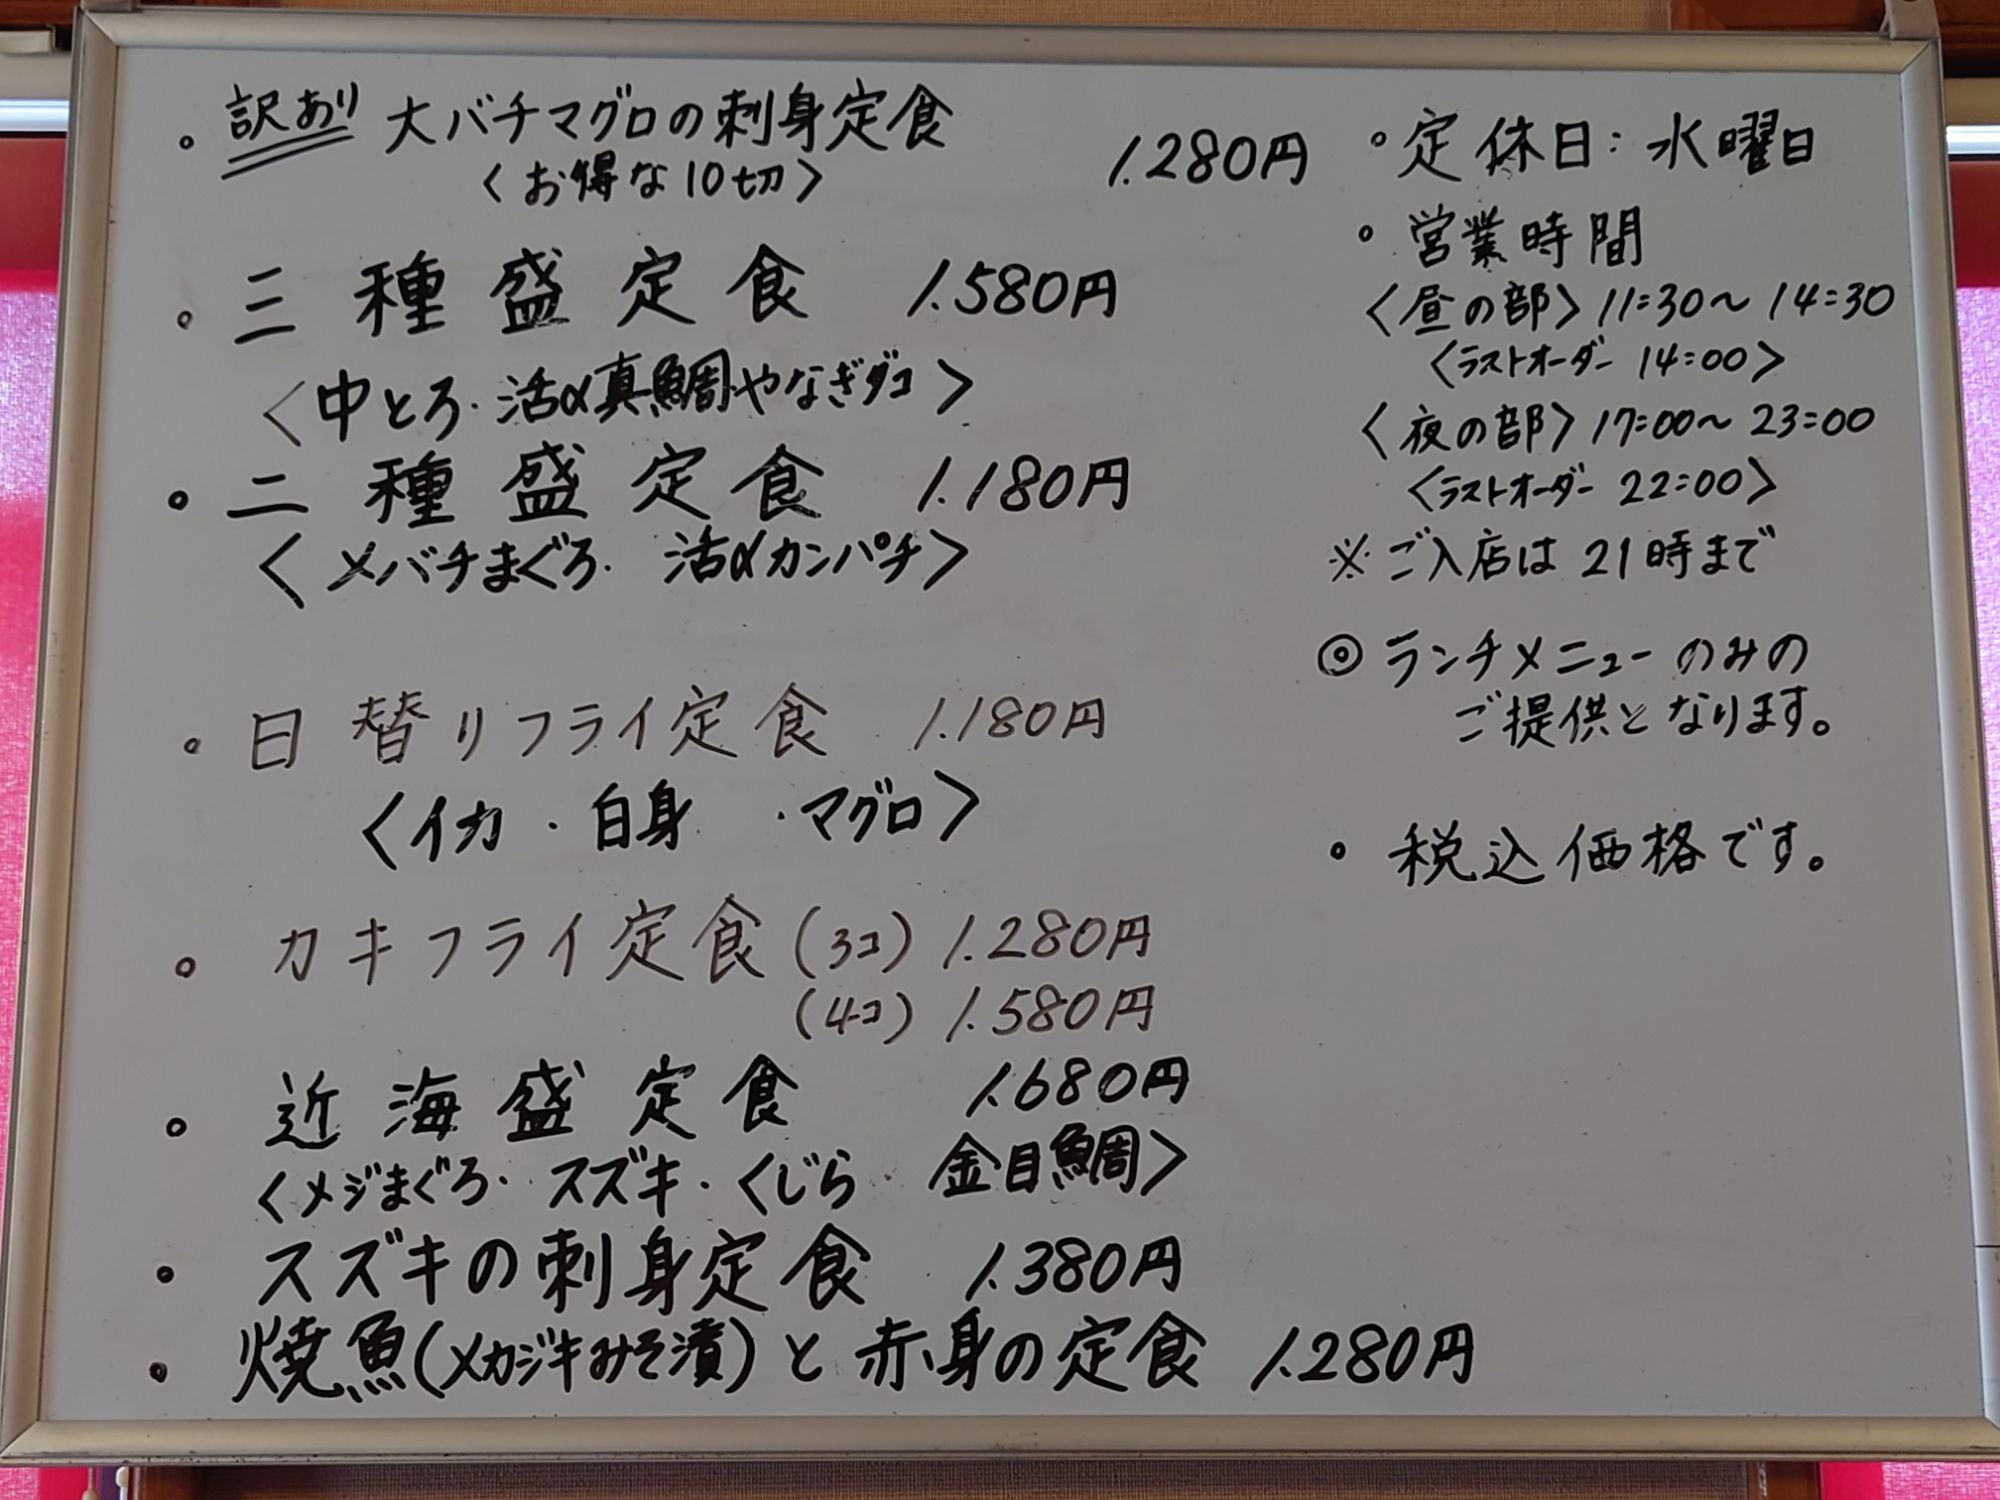 。訳あり 大バチマグロの刺身定食 1.280円
〈お得な10切〉
。三種盛定食 1.580円
〈中とろ・活〆真鯛やなぎダコ〉
。二種盛定食 1.180円
〈メバチまぐろ・活〆カンパチ〉
。日替りフライ定食 1.180円
〈イカ・白身・マグロ〉
。カキフライ定食(3コ) 1.280円
(4コ) 1.580円
。近海盛定食 1.680円
〈メジまぐろ・スズキ・くじら 金目鯛〉
。スズキの刺身定食 1.380円
。焼魚(メカジキみそ漬)と赤身の定食 1.280円
。定休日:水曜日
。営業時間
〈昼の部〉11:30〜14:30
〈ラストオーダー 14:00〉
〈夜の部〉17:00〜23:00
〈ラストオーダー 22:00〉
※ご入店は21時まで
◎ランチメニューのみの
ご提供となります。
。税込価格です。